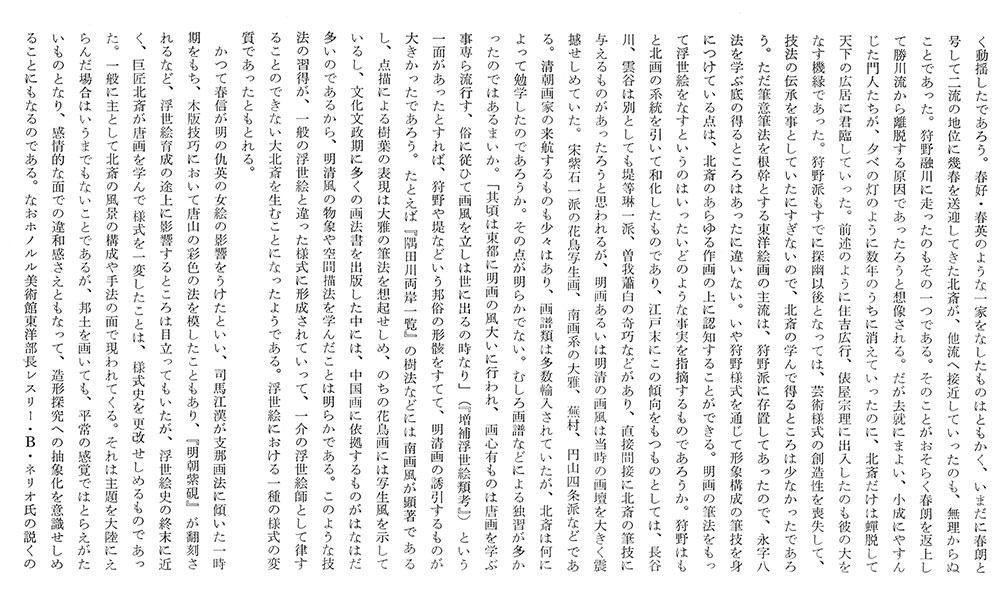 く動揺したであろう。春好・春英のような一家をなしたものはともかく、いまだに春朗と
号して二流の地位に幾春を送迎してきた北斎が、他流へ接近していったのも、無理からぬ
ことであった。狩野融川に走ったのもその一つである。そのことがおそらく春朗を返上し
て勝川流から離脱する原因であったろうと想像される。だが去就にまよい、小成にやすん
じた門人たちが、夕べの灯のように数年のうちに消えていったのに、北斎だけは蟬脱して
天下の広居に君臨していった。前述のように住吉広行、俵屋宗理に出入したのも彼の大を
なす機縁であった。狩野派もすでに探幽以後となっては、芸術様式の創造性を喪失して、
技法の伝承を事としていたにすぎないので、北斎の学んで得るところは少なかったであろ
う。ただ筆意筆法を根幹とする東洋絵画の主流は、狩野派に存置してあったので、永字八
法を学ぶ底の得るところはあったに違いない。いや狩野様式を通じて形象構成の筆技を身
につけている点は、北斎のあらゆる作画の上に認知することができる。明画の筆法をもっ
て浮世絵をなすというのはいったいどのような事実を指摘するものであろうか。狩野はも
と北画の系統を引いて和化したものであり、江戸末にこの傾向をもつものとしては、長谷
川、雲谷は別としても堤等琳一派、曽我蕭白の奇巧などがあり、直接間接に北斎の筆技に
与えるものがあったろうと思われるが、明画あるいは明清の画風は当時の画壇を大きく震
撼せしめていた。宋紫石一派の花鳥写生画、南画系の大雅、蕪村、円山四条派などであ
る。清朝画家の来航するものも少々はあり、画譜類は多数輸入されていたが、北斎は何に
よって勉学したのであろうか。その点が明らかでない。むしろ画譜などによる独習が多か
ったのではあるまいか。「其頃は東都に明画の風大いに行われ、画心有ものは唐画を学ぶ
事専ら流行す、俗に従ひて画風を立しは世に出るの時なり」（『増補浮世絵類考』）という
一面があったとすれば、狩野や堤などいう邦俗の形骸をすてて、明清画の誘引するものが
大きかったであろう。たとえば『隅田川両岸一覧』の樹法などには南画風が顕著である
し、点描による樹葉の表現は大雅の筆法を想起せしめ、のちの花鳥画には写生風を示して
いるし、文化文政期に多くの画法書を出版した中には、中国画に依拠するものがはなはだ
多いのであるから、明清風の物象や空間描法を学んだことは明らかである。このような技
法の習得が、一般の浮世絵と違った様式に形成されていって、一介の浮世絵師として律す
ることのできない大北斎を生むことになったようである。浮世絵における一種の様式の変
質であったともとれる。
かつて春信が明の仇英の女絵の影響をうけたといい、司馬江漢が支那画法に傾いた一時
期をもち、木版技巧において唐山の彩色の法を模したこともあり、『明朝紫硯』が翻刻さ
れるなど、浮世絵育成の途上に影響するところは目立ってもいたが、浮世絵史の終末に近
く、巨匠北斎が唐画を学んで様式を一変したことは、様式史を更改せしめるものであっ
た。一般に主として北斎の風景の構成や手法の面で現われてくる。それは主題を大陸にえ
らんだ場合はいうまでもないことであるが、邦土を画いても、平常の感覚ではとらえがた
いものとなり、感情的な面での違和感さえともなって、造形探究への抽象化を意識せしめ
ることにもなるのである。なおホノルル美術館東洋部長レスリー・B・ネリオ氏の説くの